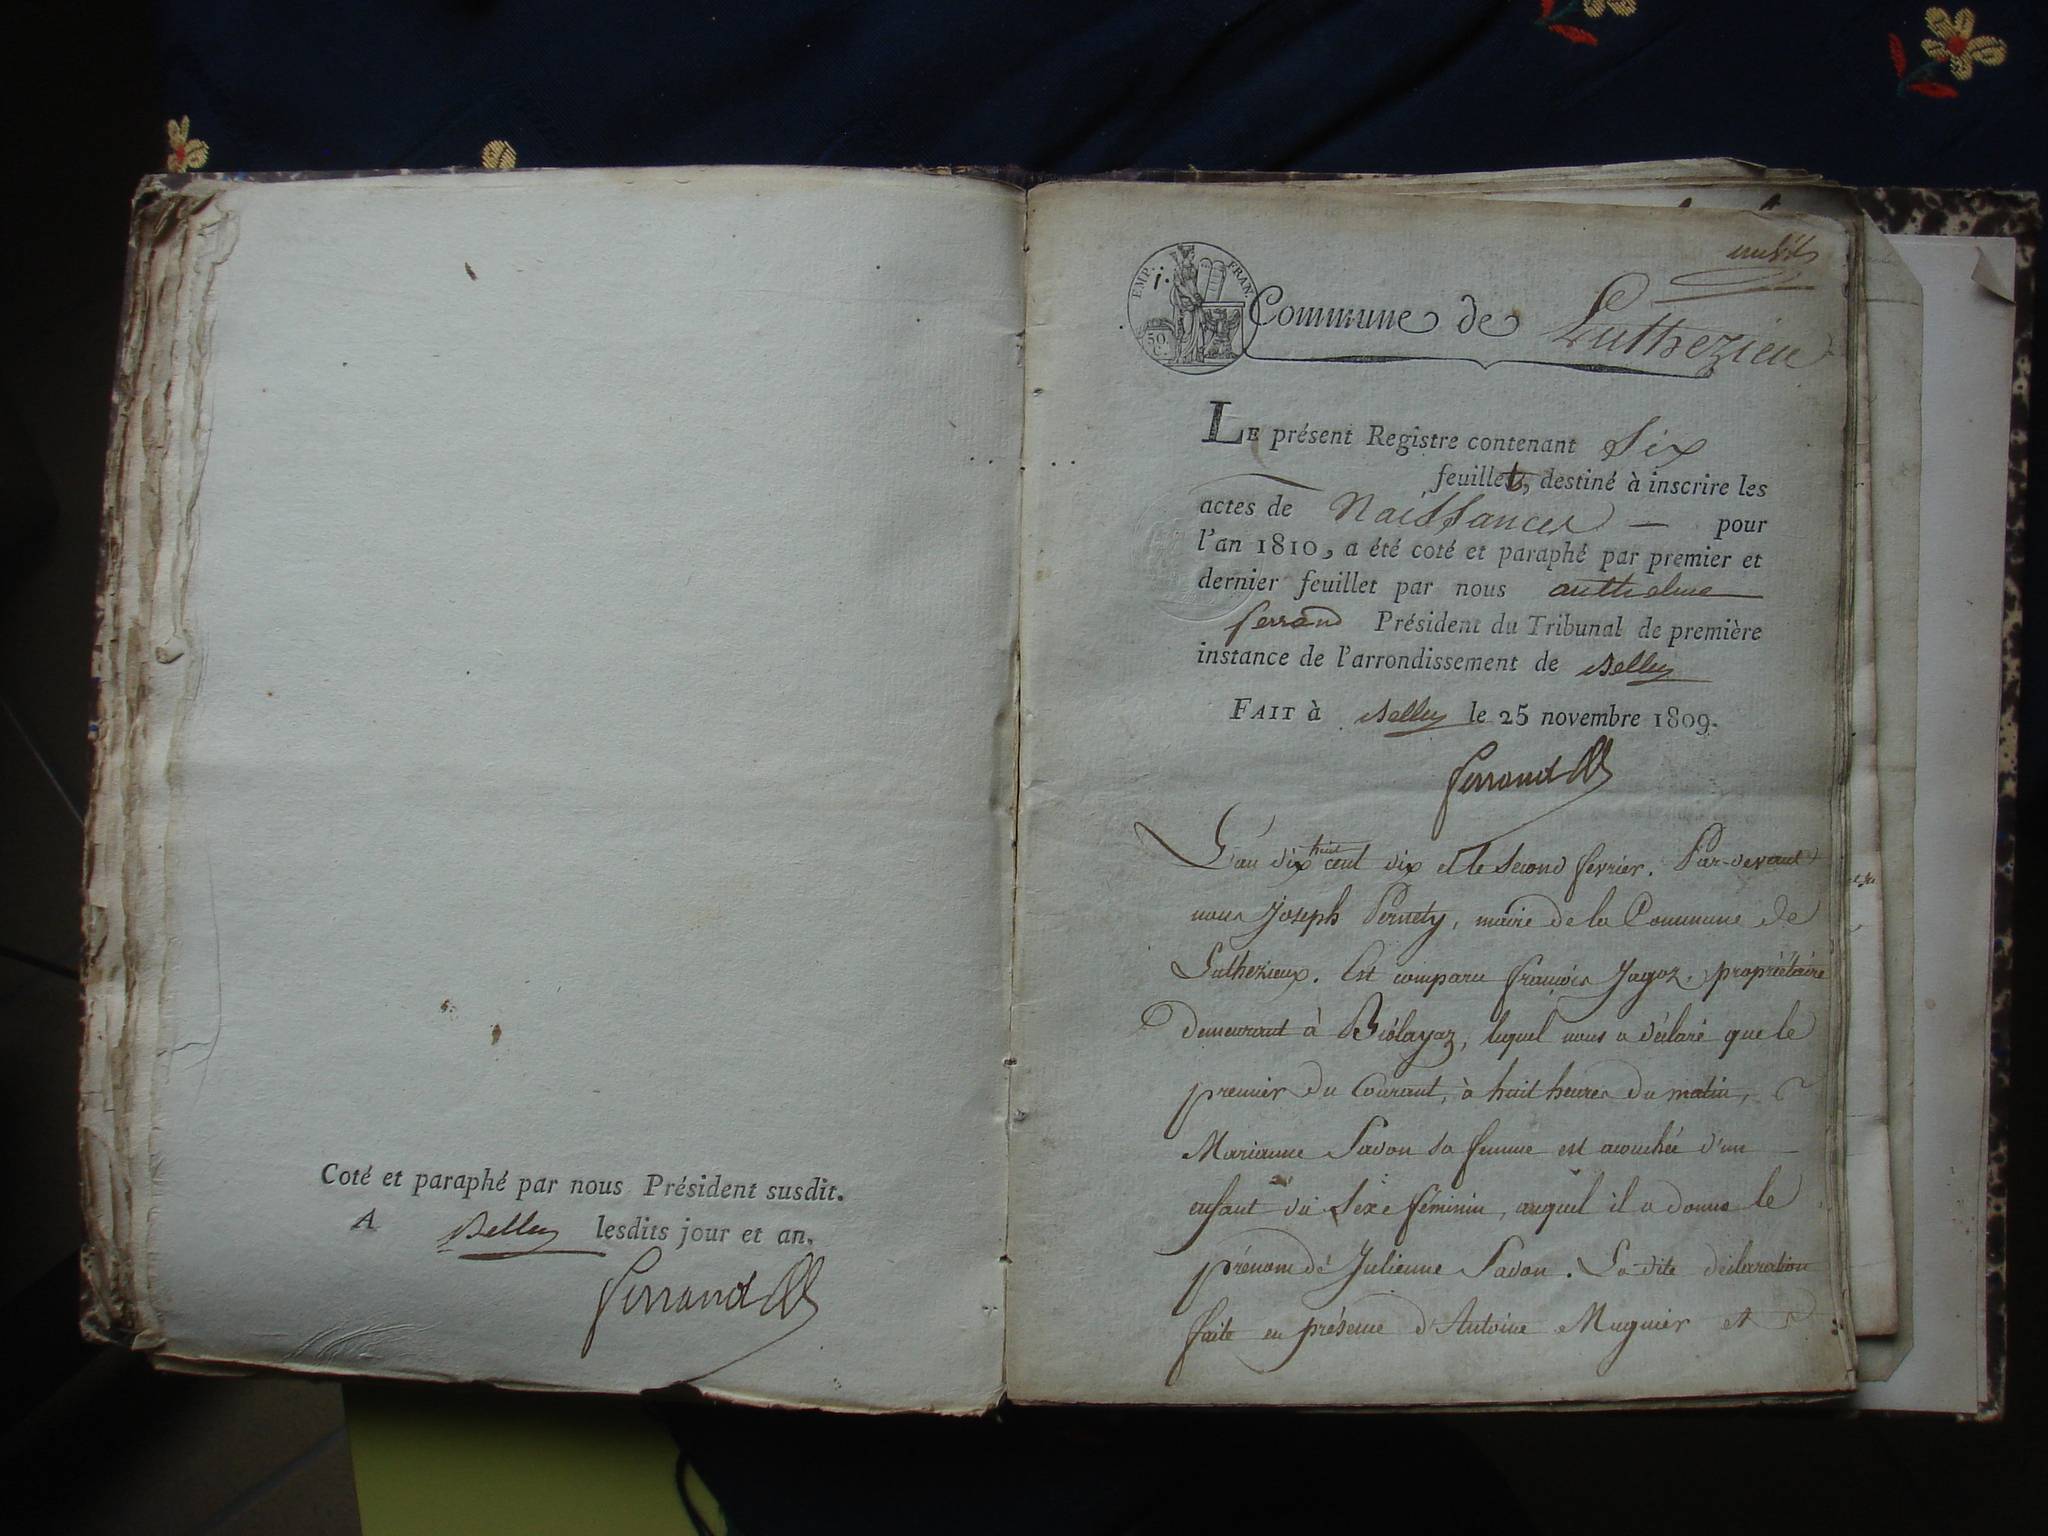 Coté et paraphé par nous Président susdit.
A Belley lesdits jour et an.
Ferrand
EMP. FRAN.
50.
C.
Commune de Luthezieu
LE présent Registre contenant Six
feuillets, destiné à inscrire les
actes de Naissances — pour
l'an 1810, a été coté et paraphé par premier et
dernier feuillet par nous anthelme
ferrand Président du Tribunal de première
instance de l'arrondissement de Belley
FAIT à Belley le 25 novembre 1809.
Ferrand
L'an dix huit cent dix et le second fevrier. Par-devant
nous Joseph Pernety, maire de la Commune de
Luthezieux. Est comparu françois Jagoz. propriétaire
demeurant à Biolayaz, lequel nous a déclaré que le
premier du Courant, à huit heures du matin,
Marianne Savon sa femme est acouchée d'un
enfant du Sexe féminin, auquel il a donné le
prénom de Julienne Savon. La dite déclaration
faite en présence d'Antoine Mugnier et